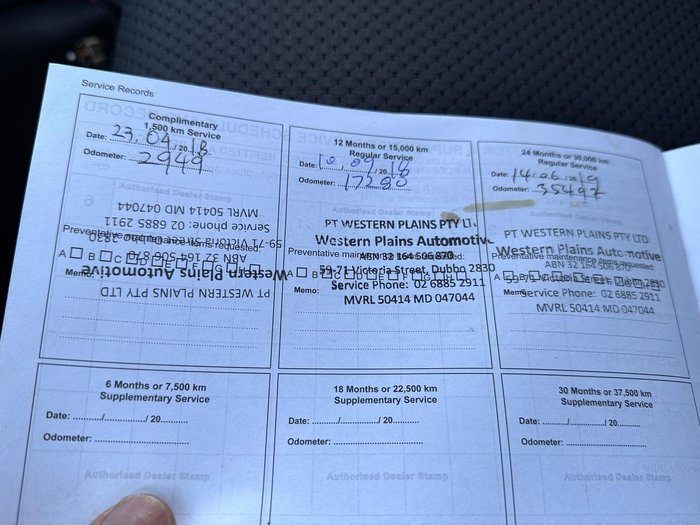 Service Records
Complimentary
1,500 km Service
Date: 23/04/2018
Odometer: 2949
Authorised Dealer Stamp
PT WESTERN PLAINS PTY LTD
Western Plains Automotive
ABN 32 164 506 870
59-71 Victoria Street, Dubbo 2830
Service phone: 02 6885 2911
MVRL 50414 MD 047044
Preventative maintenance items requested:
A B C D E F G H
Memo:
12 Months or 15,000 km
Regular Service
Date: 10/09/2018
Odometer: 17280
Authorised Dealer Stamp
PT WESTERN PLAINS PTY LT
Western Plains Automotiv
ABN 32 164 506 870
59-71 Victoria Street, Dubbo 2830
Service Phone: 02 6885 2911
MVRL 50414 MD 047044
Preventative maintenance items requested:
A B C D E F G H
Memo:
24 Months or 30,000 km
Regular Service
Date: 14/06/2019
Odometer: 35497
Authorised Dealer Stamp
PT WESTERN PLAINS PTY LTD
Western Plains Automotive
ABN 32 164 506 870
59-71 Victoria Street, Dubbo 2830
Service Phone: 02 6885 2911
MVRL 50414 MD 047044
Preventative maintenance items requested:
A B C D E F G H
Memo:
6 Months or 7,500 km
Supplementary Service
Date: ........./........./ 20.........
Odometer: ..............................
Authorised Dealer Stamp
18 Months or 22,500 km
Supplementary Service
Date: ........./........./ 20.........
Odometer: ..............................
Authorised Dealer Stamp
30 Months or 37,500 km
Supplementary Service
Date: ........./........./ 20.........
Odometer: ..............................
Authorised Dealer Stamp